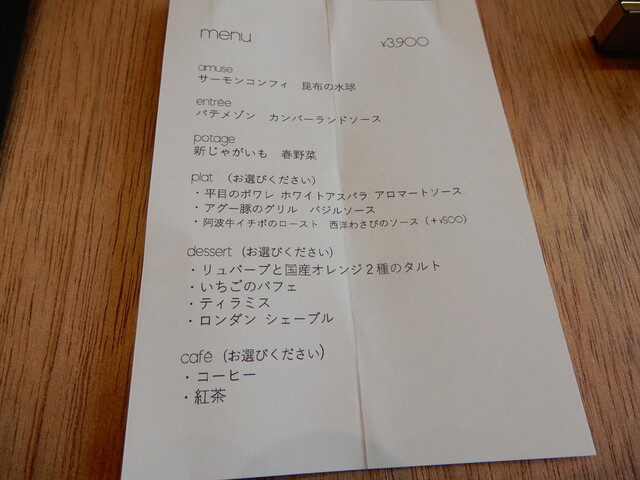 menu
¥3,900
amuse
サーモンコンフィ 昆布の水球
entrée
パテメゾン カンバーランドソース
potage
新じゃがいも 春野菜
plat (お選びください)
・平目のポワレ ホワイトアスパラ アロマートソース
・アグー豚のグリル バジルソース
・阿波牛イチボのロースト 西洋わさびのソース (+¥500)
dessert (お選びください)
・リュバーブと国産オレンジ2種のタルト
・いちごのパフェ
・ティラミス
・ロンダン シェーブル
café (お選びください)
・コーヒー
・紅茶